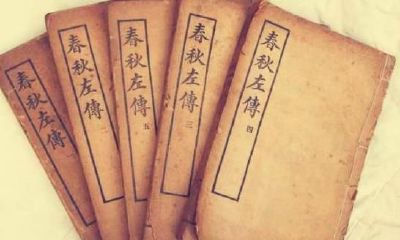 春秋左傳
春秋左傳
春秋左傳 五
春秋左傳 三
春秋左傳 四